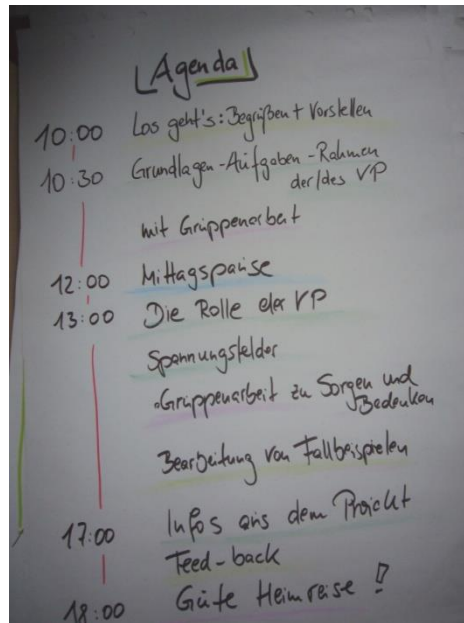 Agenda
10:00 Los geht's: Begrüßen + Vorstellen
10:30 Grundlagen - Aufgaben - Rahmen
der/des VP
mit Gruppenarbeit
12:00 Mittagspause
13:00 Die Rolle der VP
Spannungsfelder
Gruppenarbeit zu Sorgen und
Bedenken
Bearbeitung von Fallbeispielen
17:00 Infos aus dem Projekt
Feed-back
18:00 Gute Heimreise !